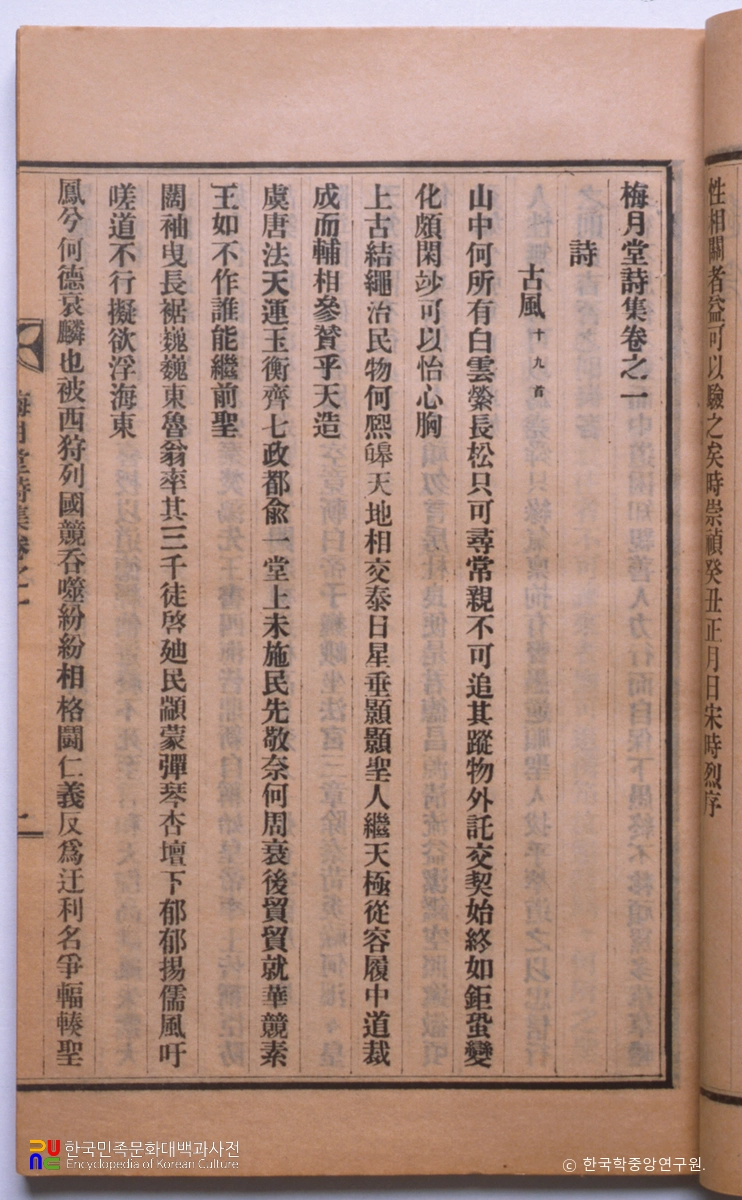 性相關者溢可以驗之矣時崇禎癸丑正月日宋時烈序
梅月堂詩集卷之一
詩
古風十九首
山中何所有白雲縈長松只可尋常親不可追其蹤物外託交契始終如鉅蛩變
化頗閑玅可以怡心胸
上古結繩治民物何熙皥天地相交泰日星垂顥顥聖人繼天極從容履中道裁
成而輔相參贊乎天造
虞唐法天運玉衡齊七政都兪一堂上未施民先敬奈何周衰後貿貿就華競素
王如不作誰能繼前聖
闊袖曳長裾巍巍東魯翁率其三千徒啓廸民顓蒙彈琴杏壇下郁郁揚儒風吁
嗟道不行擬欲浮海東
鳳兮何德衰麟也被西狩列國競吞噬紛紛相格鬪仁義反爲迂利名爭輻輳聖
梅月堂詩集卷之一
한국민족문화대백과사전
Encyclopedia of Korean Culture
© 한국학중앙연구원.